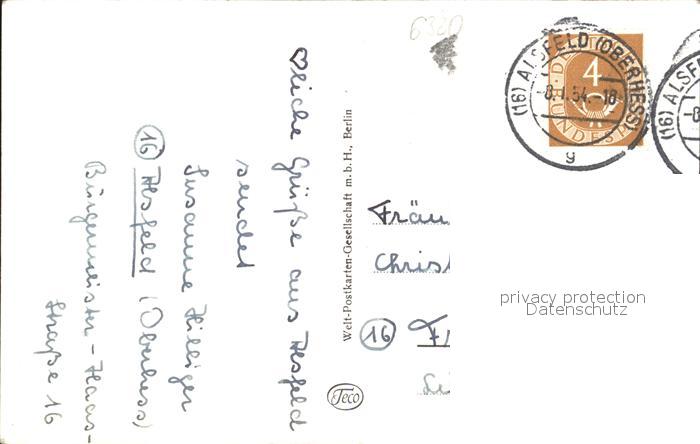 ♡liche Grüße aus Alsfeld
sendet
Susanne Hilliger
(16) Alsfeld (Oberhess)
Bürgermeister-Haas-
straße 16
Welt-Postkarten-Gesellschaft m.b.H., Berlin
Teco
6320
(16) ALSFELD (OBERHESS)
-8.1.54.-18
g
4
(16) ALSFE
Fräu
Christ
(16)
privacy protection
Datenschutz